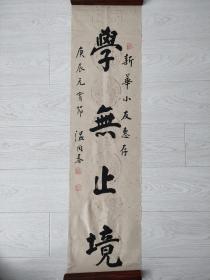 新華小友惠存
學無止境
庚辰元宵節 温同春